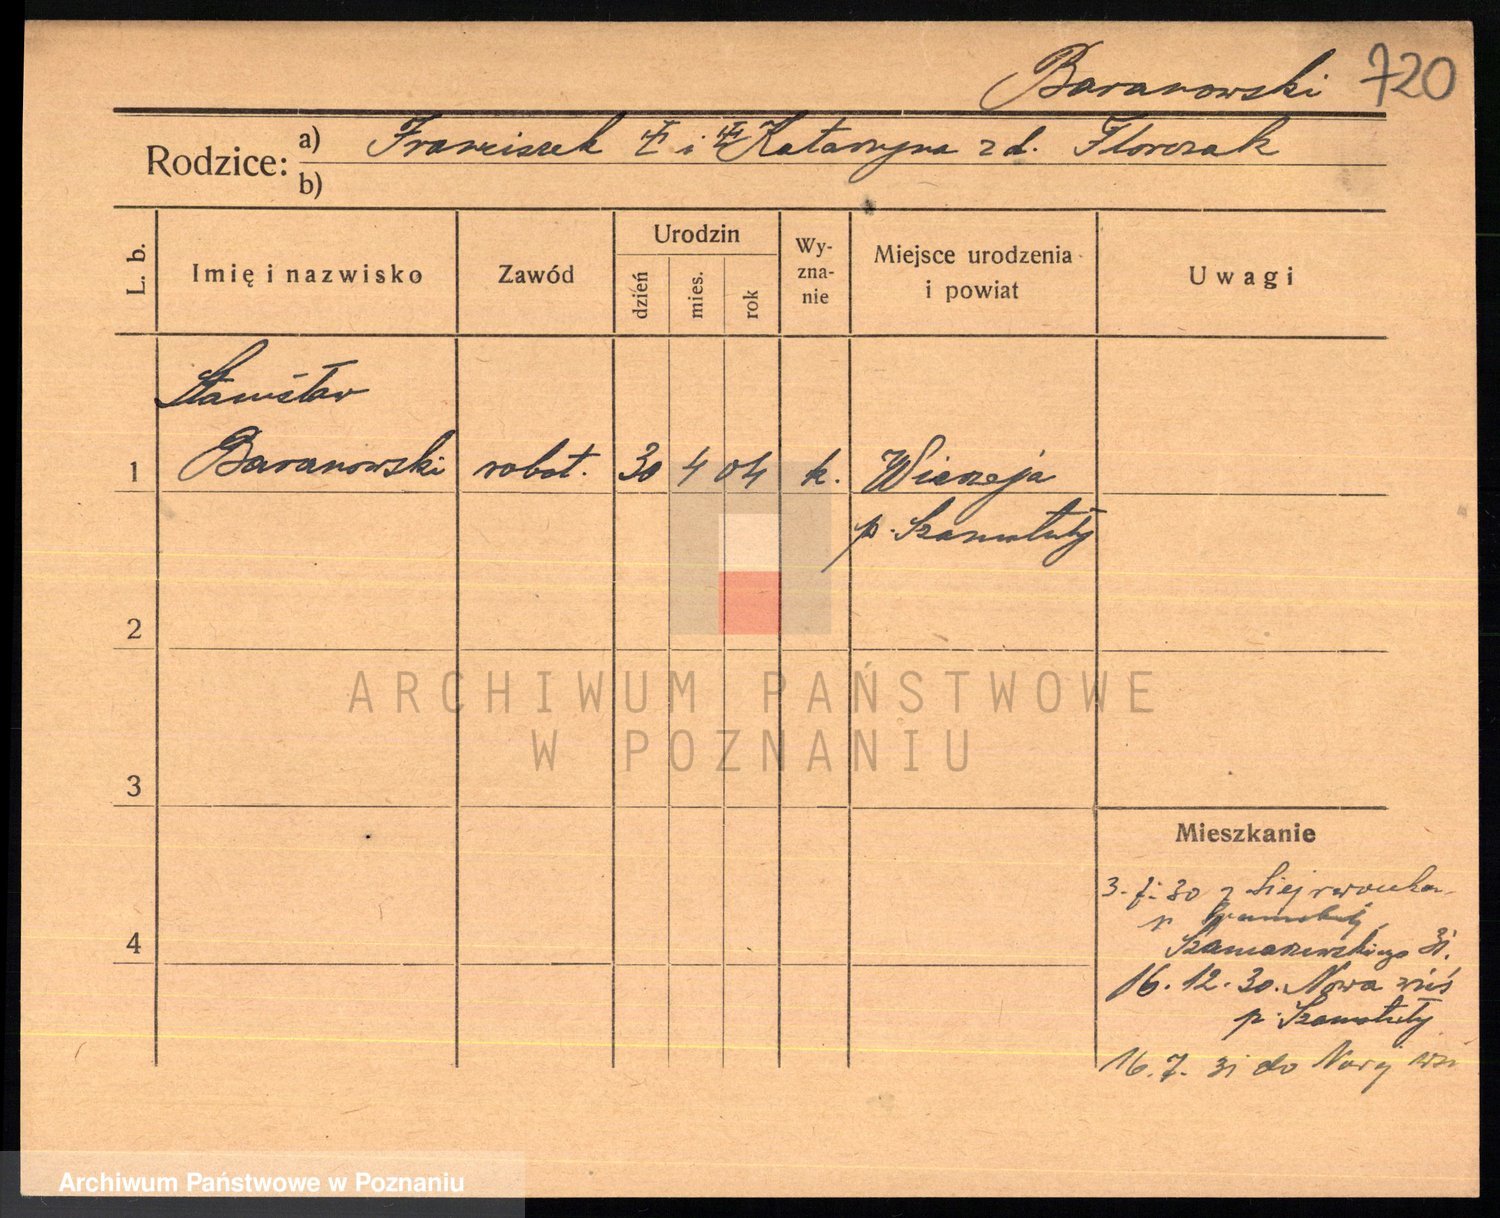 Baranowski 720
Rodzice: a) Franciszek i Katarzyna z d. Florczak
b)
L. b. Imię i nazwisko Zawód Urodzin dzień mies. rok Wyznanie Miejsce urodzenia i powiat Uwagi
Stanisław
1 Baranowski robot. 30 4 04 k. Wierzeja
p. Szamotuły
2
ARCHIWUM PAŃSTWOWE
W POZNANIU
3
Mieszkanie
3. 7. 30 z
p. Szamotuły
4 31.
16. 12. 30. Nowa wieś
p. Szamotuły
16. 7. 31 do Nowej wsi
Archiwum Państwowe w Poznaniu